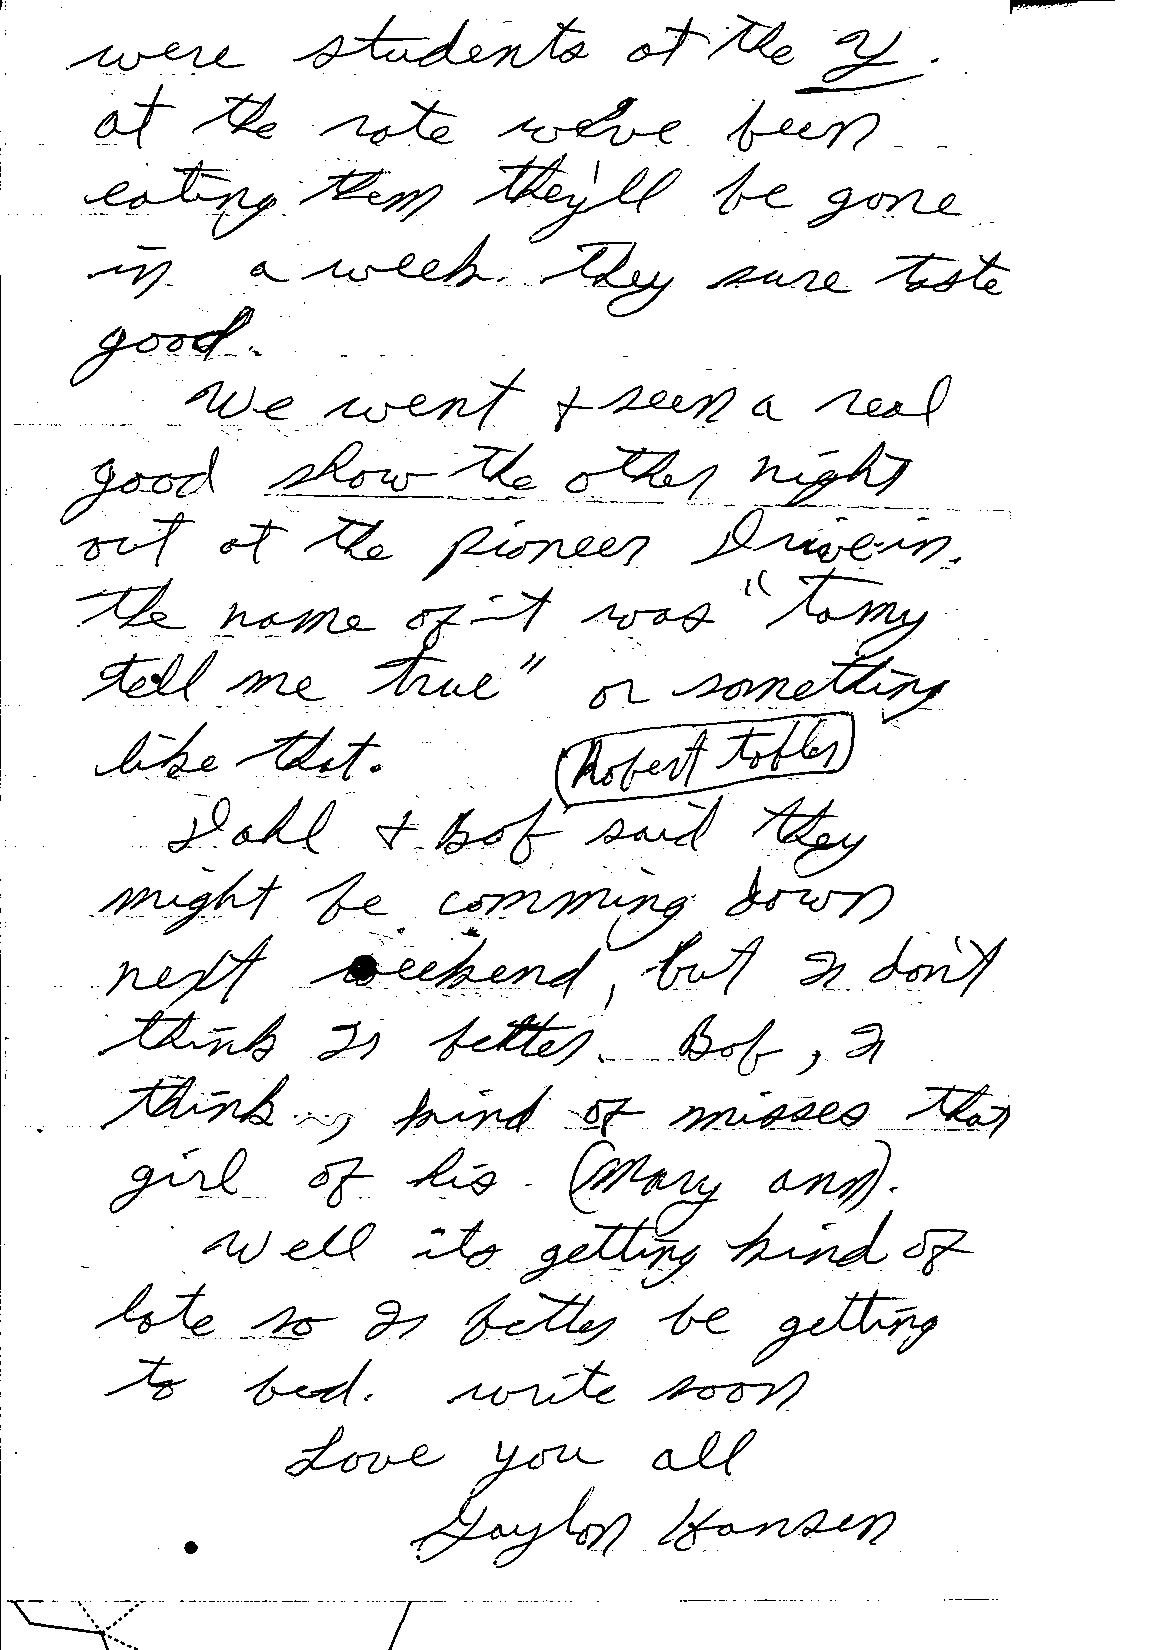 were students at the Y.
at the rate we've been
eating them they'll be gone
in a week. they sure taste
good.
We went + seen a real
good show the other night
out at the pioneer Drive-in.
the name of it was "tamy
tell me true" or something
like that.
Robert Tobler
Dahl + Bob said they
might be comming down
next weekend, but I don't
think Is better. Bob, I
think, kind of misses that
girl of his. (Mary ann).
Well its getting kind of
late so Is better be getting
to bed. write soon
Love you all
Gaylon Hansen